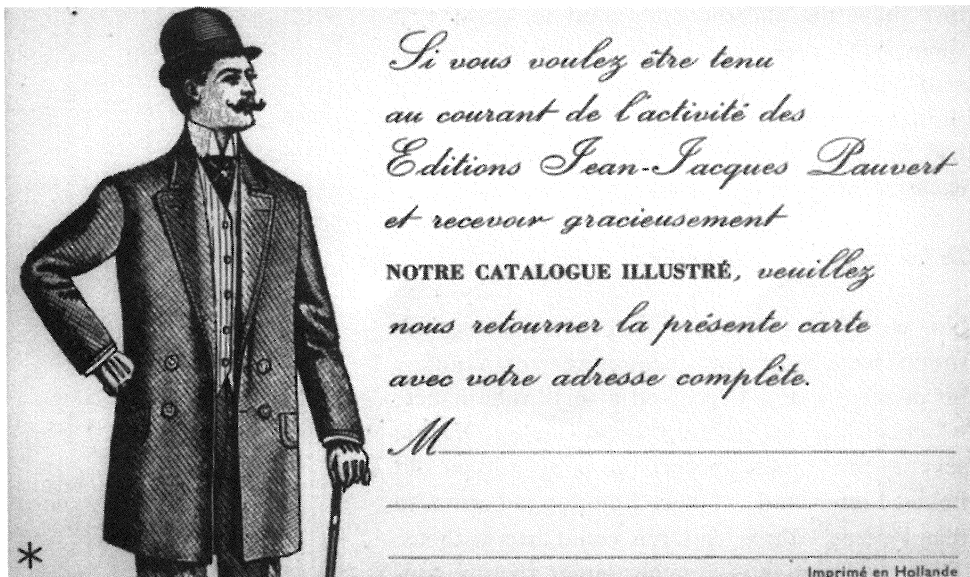 Si vous voulez être tenu
au courant de l'activité des
Editions Jean-Jacques Pauvert
et recevoir gracieusement
NOTRE CATALOGUE ILLUSTRÉ, veuillez
nous retourner la présente carte
avec votre adresse complète.
M
*
Imprimé en Hollande